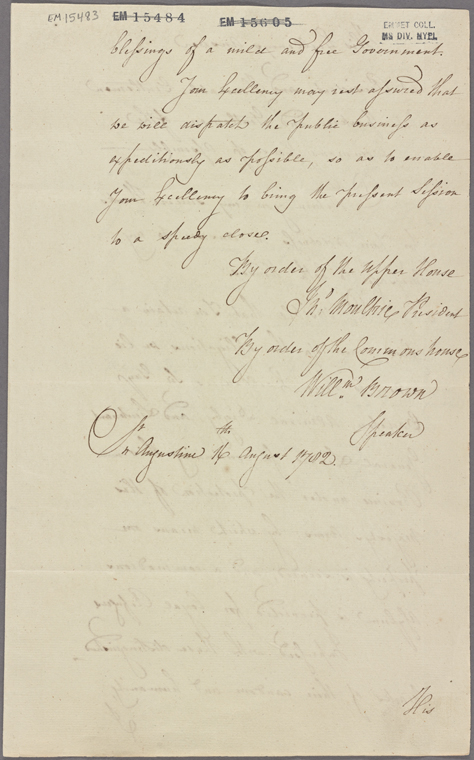 EM 15483
EM 15484
EM 15605
EMMET COLL.
MS DIV. NYPL
blessings of a mild and free Government.
Your Excellency may rest assured that
we will dispatch the public business as
expeditiously as possible, so as to enable
Your Excellency to bring the present Session
to a speedy close.
By order of the Upper House
Jno. Moultrie President
By order of the Commons house
Will.m Brown
Speaker
St. Augustine 16th August 1782.
His